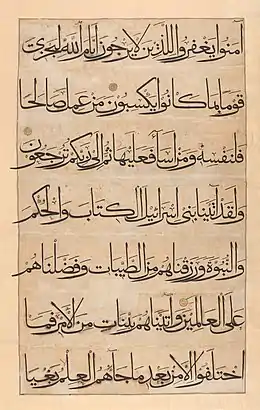 آمنوا يغفروا للذين لا يرجون أيام الله ليجزي
قوما بما كانوا يكسبون من عمل صالحا
فلنفسه ومن أسآء فعليها ثم إلى ربكم ترجعون
ولقد آتينا بني إسرائيل الكتاب والحكم
والنبوة ورزقناهم من الطيبات وفضلناهم
على العالمين وآتيناهم بينات من الأمر فما
اختلفوا إلا من بعد ما جآءهم العلم بغيا